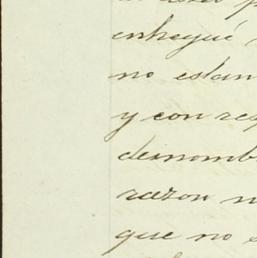 entregué
no estan
y con res
desnomb
razon n
que no s